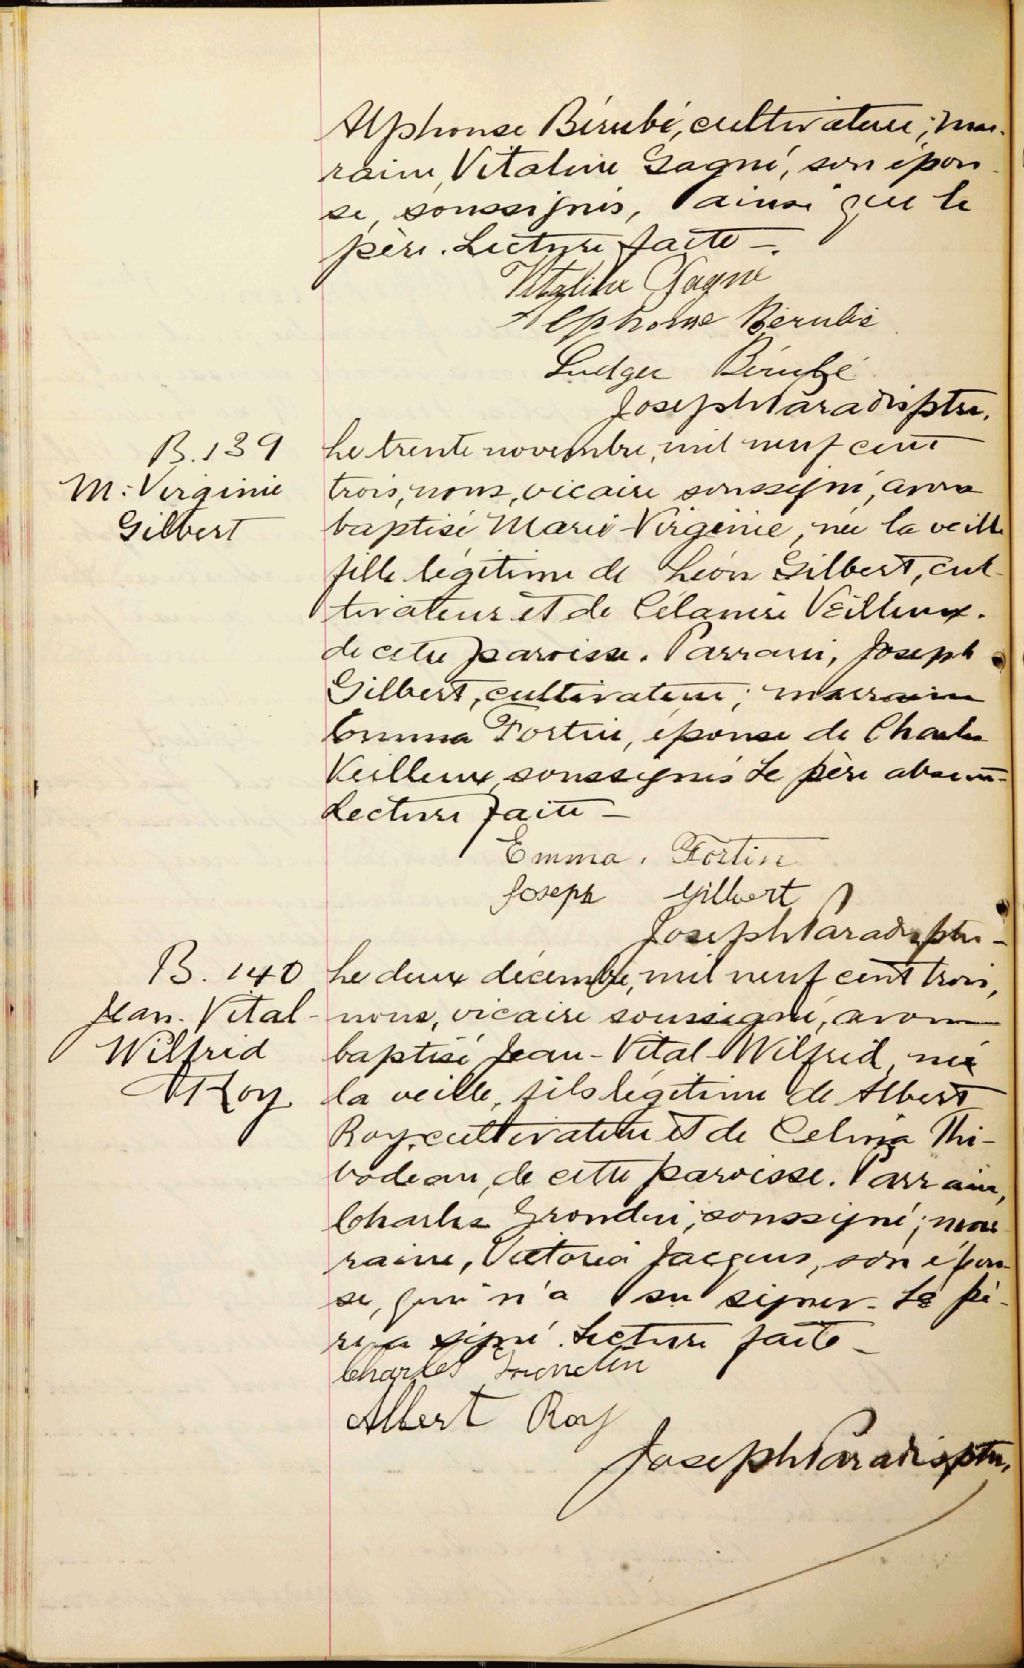 Alphonse Bérubé, cultivateur; mar-
raine, Vitaline Gagné, son épou-
se, soussignés, ainsi que le
père. Lecture faite —.
Vitaline Gagné
Alphonse Bérubé
Ludger Bérubé
Joseph Paradis ptre.
B. 139
M. Virginie
Gilbert
Le trente novembre, mil neuf cent
trois, nous, vicaire soussigné, avons
baptisé Marie-Virginie, née la veille
fille légitime de Léon Gilbert, cul-
tivateur et de Célanire Veilleux.
de cette paroisse. Parrain, Joseph
Gilbert, cultivateur; marraine
Emma Fortin, épouse de Charles
Veilleux, soussignés Le père absent—
Lecture faite —
Emma. Fortin
Joseph Gilbert
Joseph Paradis ptre —
B. 140
Jean-Vital-
Wilfrid
Roy
Le deux décembre, mil neuf cent trois,
nous, vicaire soussigné, avons
baptisé Jean-Vital-Wilfrid, né
la veille, fils légitime de Albert
Roy, cultivateur et de Celina Thi-
bodeau, de cette paroisse. Parrain,
Charles Grondin, soussigné; mar-
raine, Victoria Jacques, son épou-
se, qui n'a su signer. Le pè-
re a signé. Lecture faite —
Charles Grondin
Albert Roy
Joseph Paradis ptre.